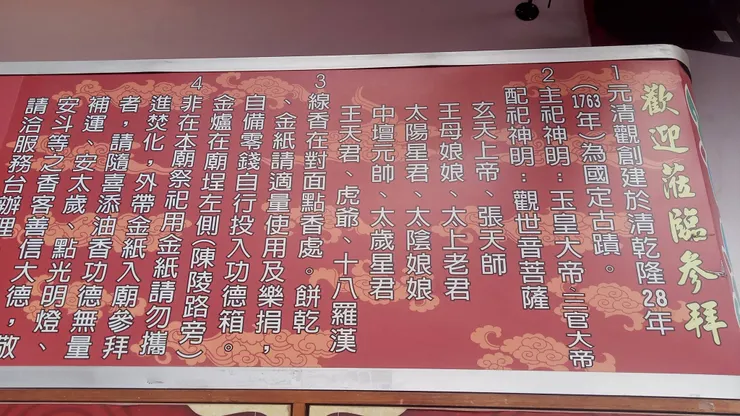 歡迎蒞臨參拜
1元清觀創建於清乾隆28年
(1763年)為國定古蹟。
2主祀神明：玉皇大帝、三官大帝
配祀神明：觀世音菩薩
玄天上帝、張天師
王母娘娘、太上老君
太陽星君、太陰娘娘
中壇元帥、太歲星君
王天君、虎爺、十八羅漢
3線香在對面點香處。餅乾
、金紙請適量使用及樂捐，
自備零錢自行投入功德箱。
金爐在廟埕左側(陳陵路旁)
4非在本廟祭祀用金紙請勿攜
進焚化，外帶金紙入廟參拜
者，請隨喜添油香功德無量
補運、安太歲、點光明燈、
安斗等之香客善信大德，敬
請洽服務台辦理